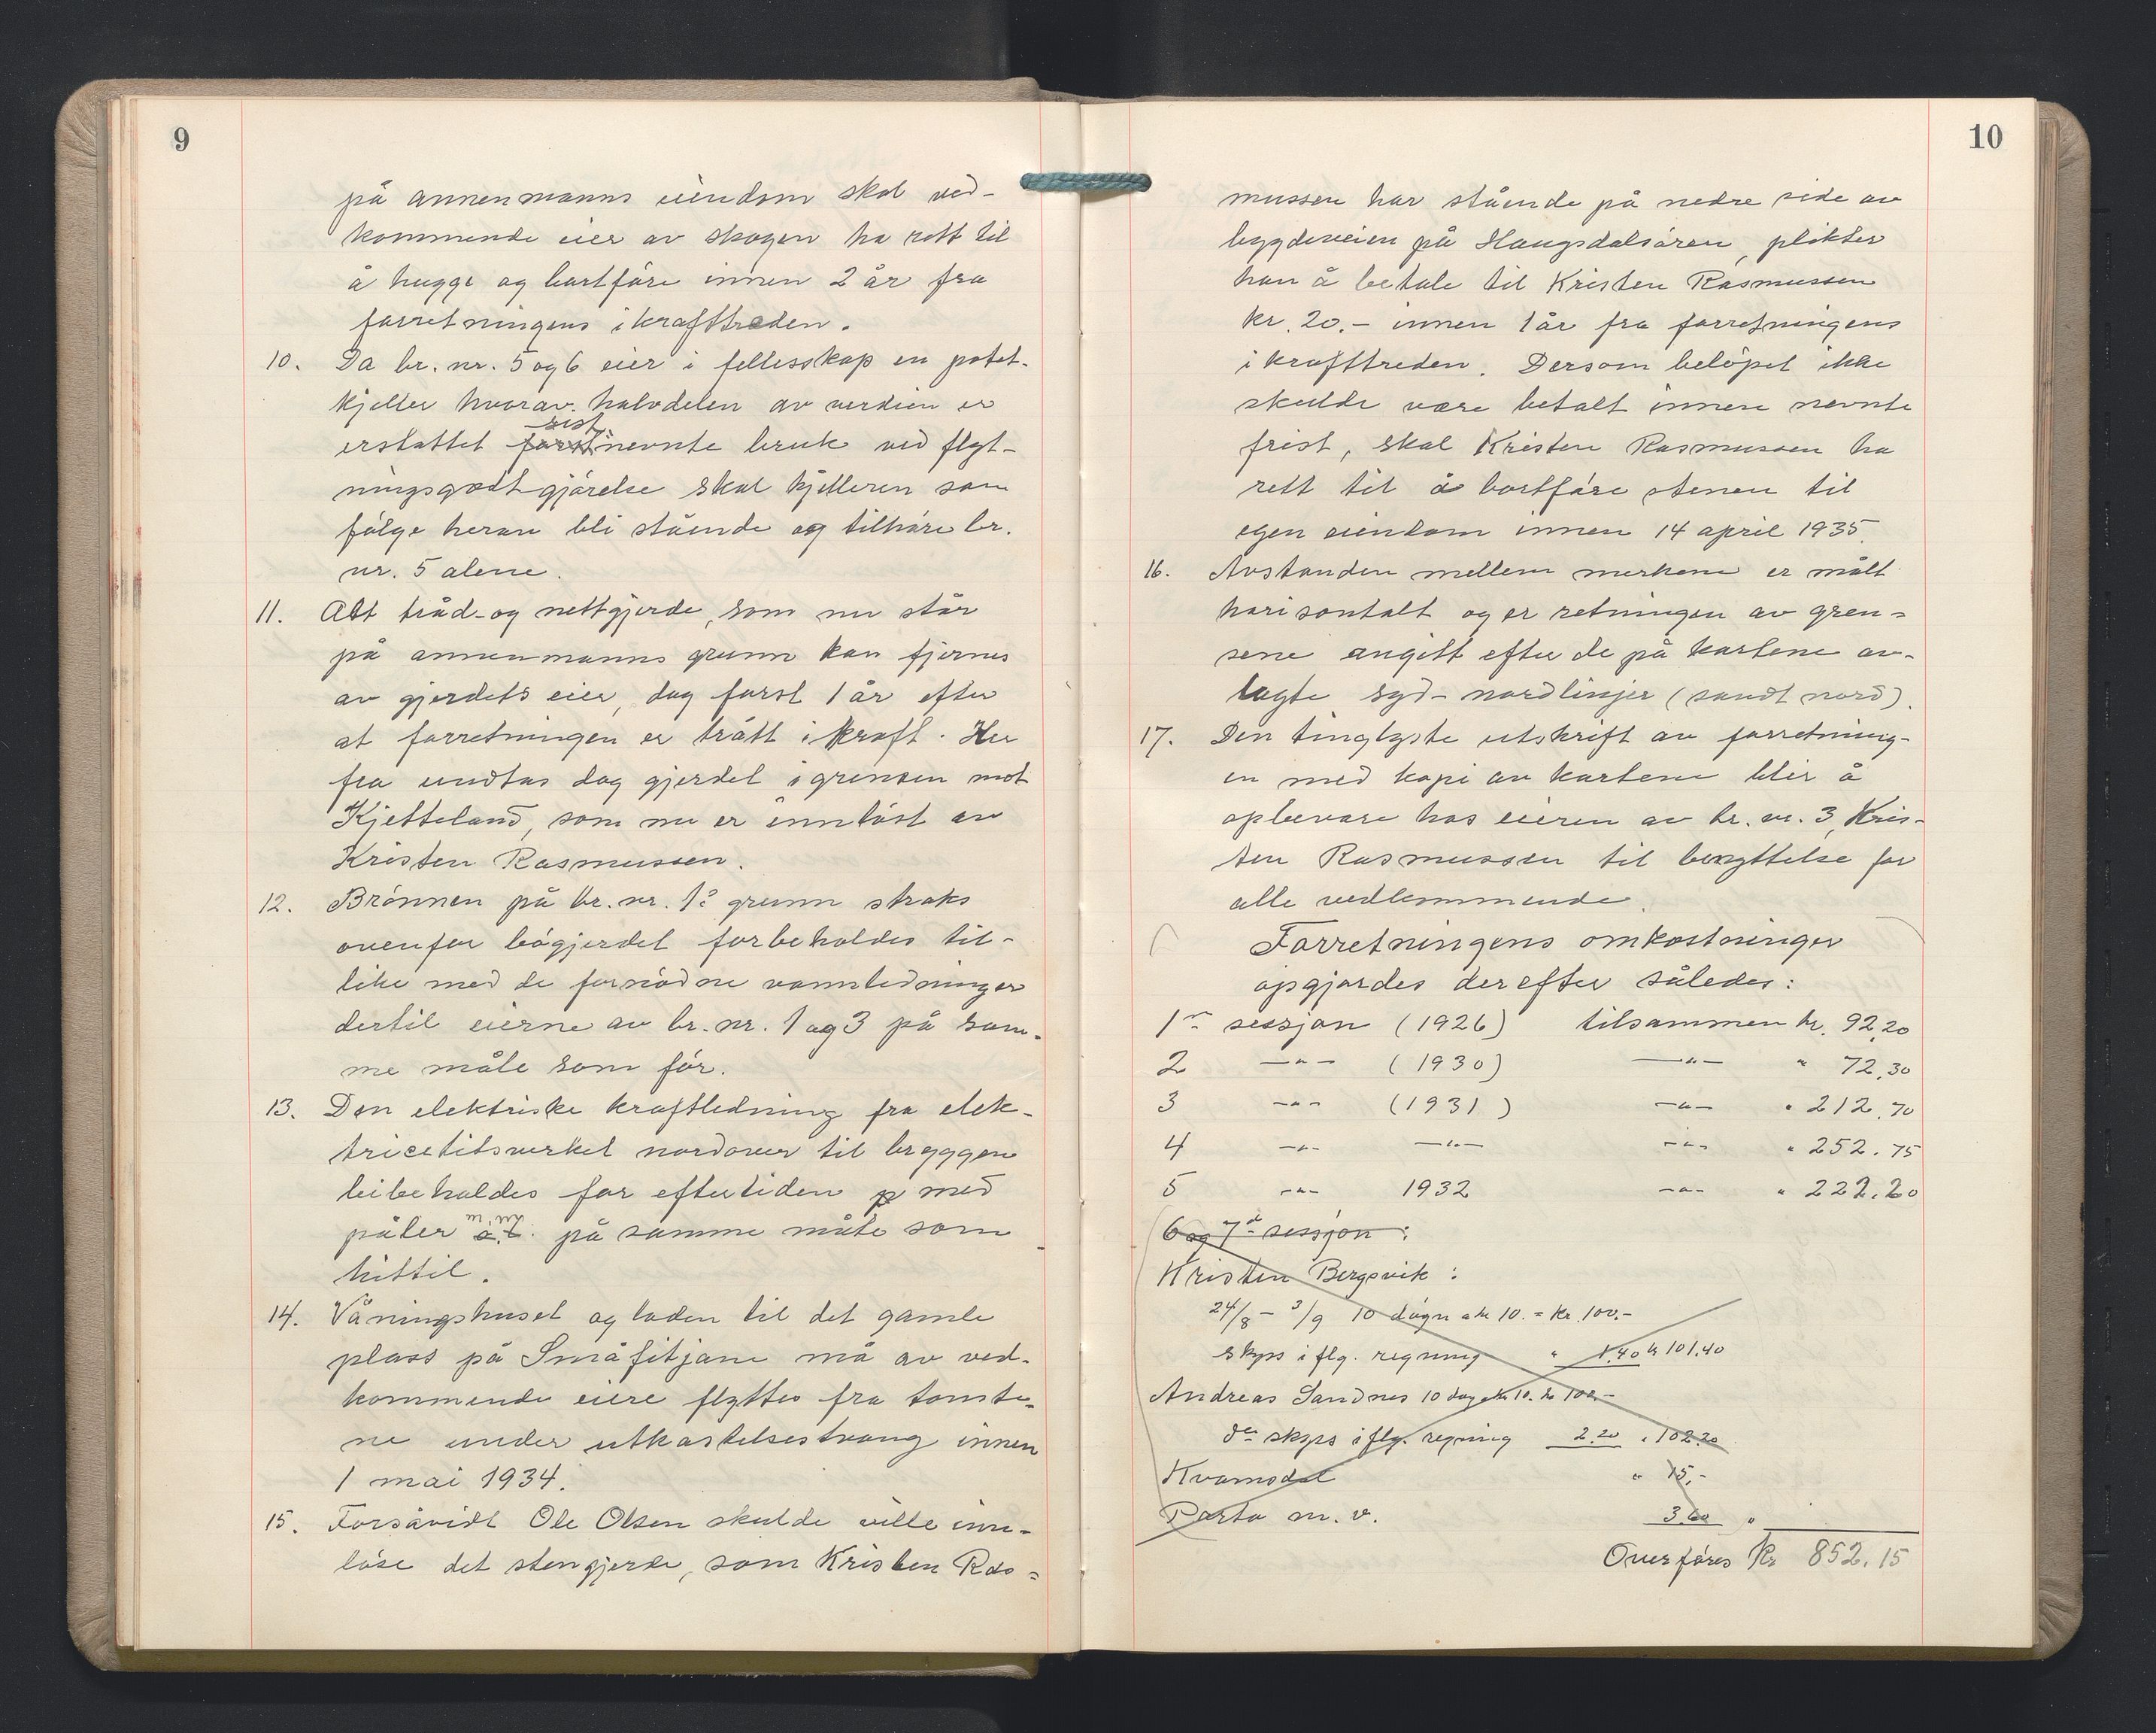 9
på annenmanns eiendom skal ved-
kommende eier av skogen ha rett til
å hugge og bortføre innen 2 år fra
forretningens ikrafttreden.
10. Da br. nr. 5 og 6 eier i fellesskap en potet-
kjeller hvorav halvdelen av verdien er
sist
erstattet først nevnte bruk ved flyt-
ningsgodtgjørelse skal kjelleren som
følge herav bli stående og tilhøre br.
nr. 5 alene.
11. Alt tråd- og nettgjerde, som nu står
på annenmanns grunn kan fjernes
av gjerdets eier, dog først 1 år efter
at forretningen er trått i kraft. Her
fra undtas dog gjerdet i grensen mot
Kjetteland, som nu er innløst av
Kristen Rasmussen.
12. Brønnen på br. nr. 1s grunn straks
ovenfor bøgjerdet forbeholdes til-
like med de fornødne vannledninger
dertil eierne av br. nr. 1 og 3 på sam-
me måte som før.
13. Den elektriske kraftledning fra elek-
tricitetsverket nordover til bryggen
beibeholdes for eftertiden p med
m. m.
påler o. l. på samme måte som
hittil.
14. Våningshuset og løden til det gamle
plass på Småfitjane må av ved-
kommende eiere flyttes fra tomte-
ne under utkastelsestvang innen
1 mai 1934.
15. Forsåvidt Ole Olsen skulde ville inn-
løse det stengjerde, som Kristen Ras-
10
mussen har stående på nedre side av
bygdeveien på Haugsdalsøren, plikter
han å betale til Kristen Rasmussen
kr. 20.- innen 1 år fra forretningens
ikrafttreden. Dersom beløpet ikke
skulde være betalt innen nevnte
frist, skal Kristen Rasmussen ha
rett til å bortføre stenen til
egen eiendom innen 14 april 1935.
16. Avstanden mellem merkene er målt
horisontalt og er retningen av gren-
sene angitt efter de på kartene av-
lagte syd-nordlinjer (sandt nord).
17. Den tinglyste utskrift av forretning-
en med kopi av kartene blir å
opbevare hos eieren av br. nr. 3, Kris-
ten Rasmussen til benyttelse for
alle vedkommende.
Forretningens omkostninger
opgjordes derefter således:
1ste sessjon (1926) tilsammen kr. 92,20
2 —"— (1930) —"— " 72,30
3 —"— (1931) —"— " 212,70
4 —"— —"— —"— " 252.75
5 —"— 1932 —"— " 222.20
6 og 7de sessjon:
Kristen Bergsvik:
24/8 - 3/9 10 døgn a kr 10. = kr. 100.-
skyss iflg. regning " 1.40 kr 101.40
Andreas Sandnes 10 dag a kr 10. kr 100.-
do skyss iflg. regning 2.20 " 102.20
Kvamsdal " 15,-
Porto m. v. 3.60 "
Overføres Kr 852.15